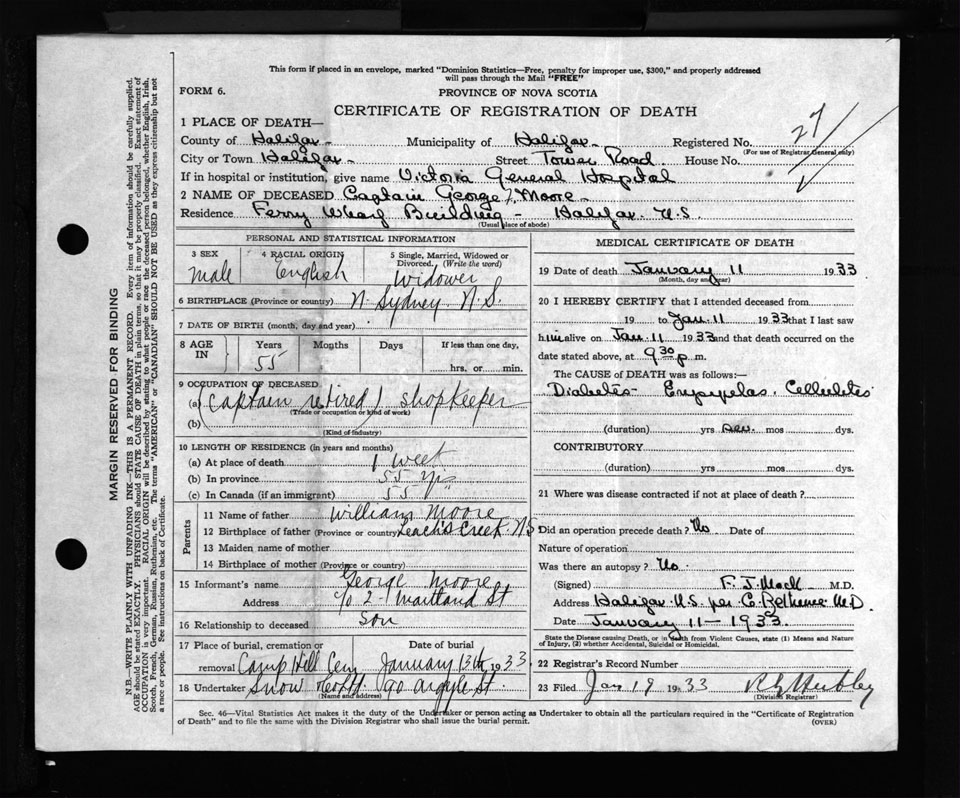 This form if placed in an envelope, marked "Dominion Statistics—Free, penalty for improper use, $300," and properly addressed
will pass through the Mail "FREE"
FORM 6.
PROVINCE OF NOVA SCOTIA
CERTIFICATE OF REGISTRATION OF DEATH
1 PLACE OF DEATH—
County of Halifax Municipality of Halifax Registered No. 27
(For use of Registrar General only)
City or Town Halifax Street Tower Road House No.
If in hospital or institution, give name Victoria General Hospital
2 NAME OF DECEASED Captain George Moore
Residence Ferry Wharf Building - Halifax N.S.
(Usual place of abode)
PERSONAL AND STATISTICAL INFORMATION
3 SEX 4 RACIAL ORIGIN 5 Single, Married, Widowed or
Divorced. (Write the word)
male English Widower
6 BIRTHPLACE (Province or country) N. Sydney. N.S.
7 DATE OF BIRTH (month, day and year)
8 AGE IN Years Months Days If less than one day,
55 hrs. or min.
9 OCCUPATION OF DECEASED
(a) (Captain retired) shopkeeper
(Trade or occupation or kind of work)
(b)
(Kind of industry)
10 LENGTH OF RESIDENCE (in years and months)
(a) At place of death 1 week
(b) In province 55 yrs
(c) In Canada (if an immigrant) 55 "
Parents
11 Name of father William Moore
12 Birthplace of father (Province or country) Leach's Creek. N.S
13 Maiden name of mother
14 Birthplace of mother (Province or country)
15 Informant's name George Moore
Address c/o 2- Maitland St
16 Relationship to deceased Son
17 Place of burial, cremation or Date of burial
removal Camp Hill Cem January 13th, 1933.
18 Undertaker Snow 90 Argyle St.
(Name and address)
MEDICAL CERTIFICATE OF DEATH
19 Date of death January 11 1933
(Month, day and year)
20 I HEREBY CERTIFY that I attended deceased from
19 to Jan. 11 1933 that I last saw
him alive on Jan. 11 1933 and that death occurred on the
date stated above, at 9 30 p m.
The CAUSE OF DEATH was as follows:—
Diabetes - Erysipelas. Cellulitis
(duration) yrs sev. mos dys.
CONTRIBUTORY
(duration) yrs mos dys.
21 Where was disease contracted if not at place of death?
Did an operation precede death? No Date of
Nature of operation
Was there an autopsy? No
(Signed) F. J. Mack M.D.
Address Halifax N.S. per C. M.D.
Date January 11-1933.
State the Disease causing Death, or in death from Violent Causes, state (1) Means and Nature
of Injury, (2) whether Accidental, Suicidal or Homicidal.
22 Registrar's Record Number
23 Filed Jan 19 1933
(Division Registrar)
Sec. 46—Vital Statistics Act makes it the duty of the Undertaker or person acting as Undertaker to obtain all the particulars required in the "Certificate of Registration
of Death" and to file the same with the Division Registrar who shall issue the burial permit.
(OVER)
MARGIN RESERVED FOR BINDING
N.B.—WRITE PLAINLY WITH UNFADING INK—THIS IS A PERMANENT RECORD. Every item of information should be carefully supplied.
AGE should be stated EXACTLY. PHYSICIANS should STATE CAUSE OF DEATH in plain terms, so that it may be properly classified. Exact statement of
OCCUPATION is very important. RACIAL ORIGIN will be described by stating to what people or race the deceased person belonged, whether English, Irish,
Scotch, French, German, Russian, Ruthenian, etc. The terms "AMERICAN" or "CANADIAN" SHOULD NOT BE USED as they express citizenship but not
a race or people. See instructions on back of Certificate.